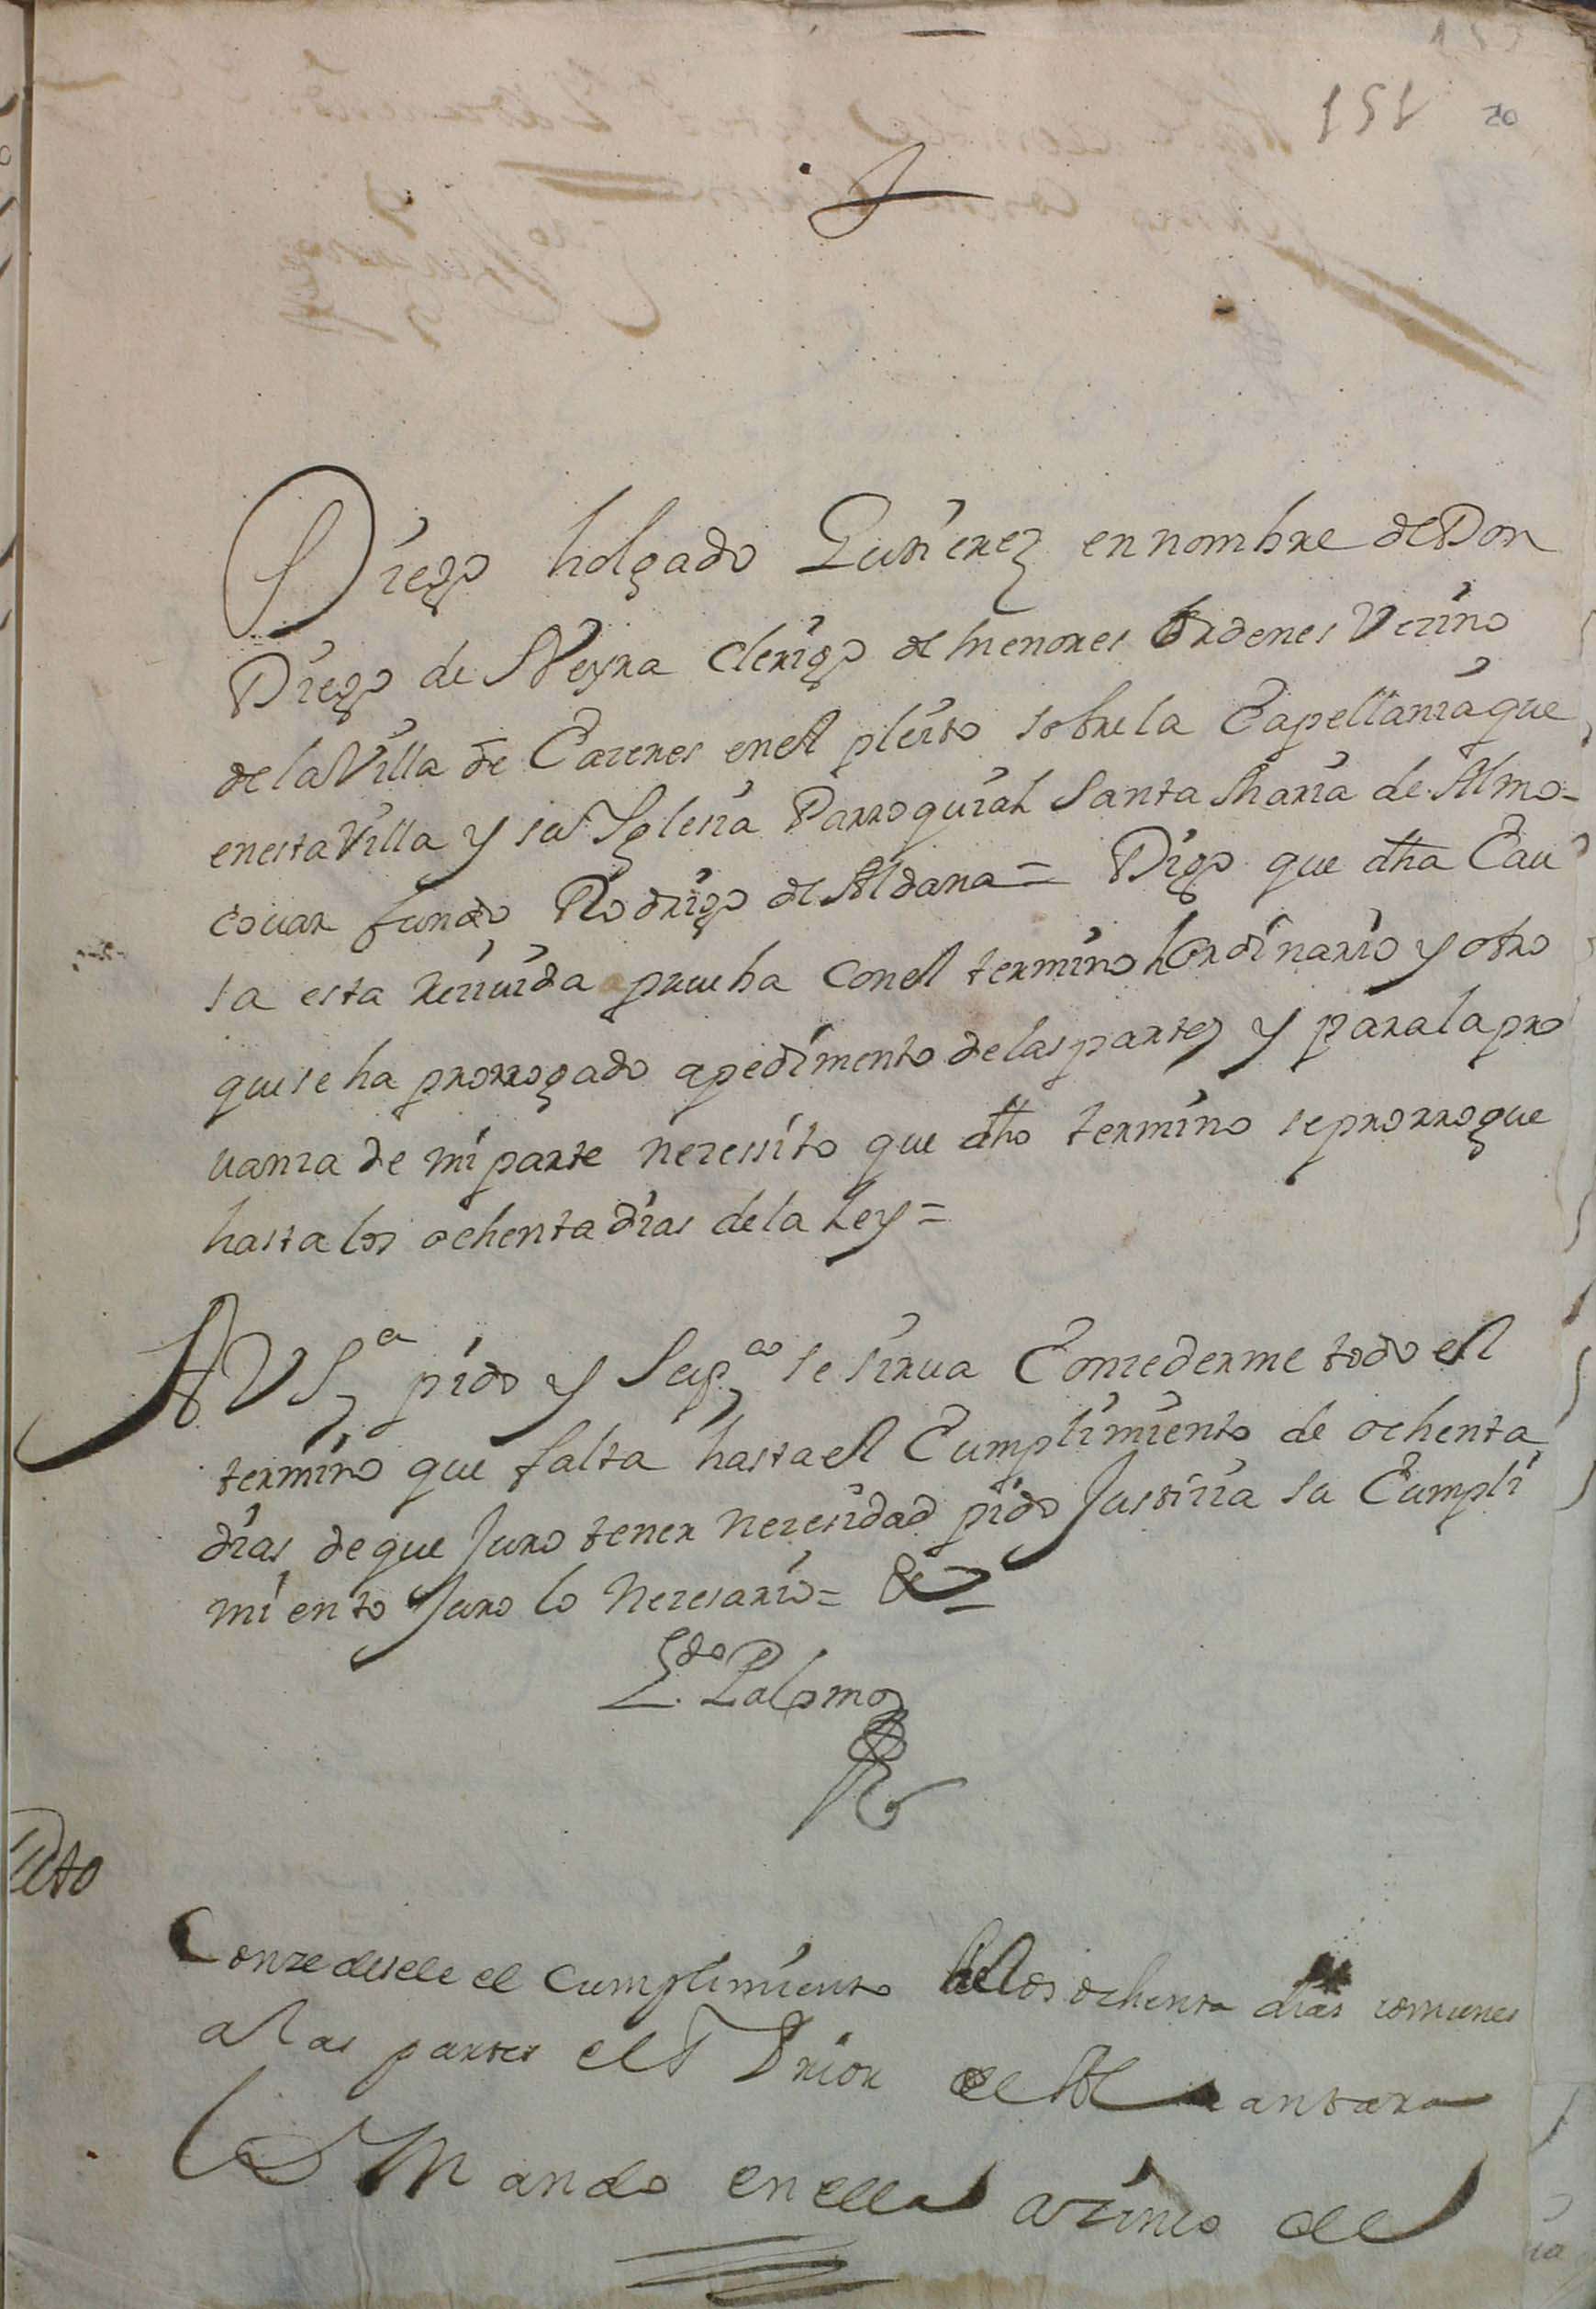 151 20
Diego holgado Gutierez en nombre de Don
Diego de Neyra Clerigo de menores hordenes Vezino
de la Villa de Cazeres en el pleito sobre la Capellania que
en esta Villa y su Yglesia Parroquial Santa Maria de Almo-
couar fundo Rodrigo de Aldana = Digo que dha Cau
sa esta reziuida a prueba con el termino hordinario y otro
que se ha prorrogado a pedimento de las partes y para la pro
uanza de mi parte nezessito que dho termino se prorrogue
hasta los ochenta dias de la ley =
A V Sª pido y Supco se sirua Conzederme todo el
termino que falta hasta el Cumplimiento de ochenta
dias de que Juro tener nezesidad pido Justizia su Cumpli
miento Juro lo nezesario = &
Ldo Palomo
Auto
Conzedesele el cumplimiento de los ochenta dias comunes
a las partes el S Prior de Alcantara
lo Mando en ella a zinco de